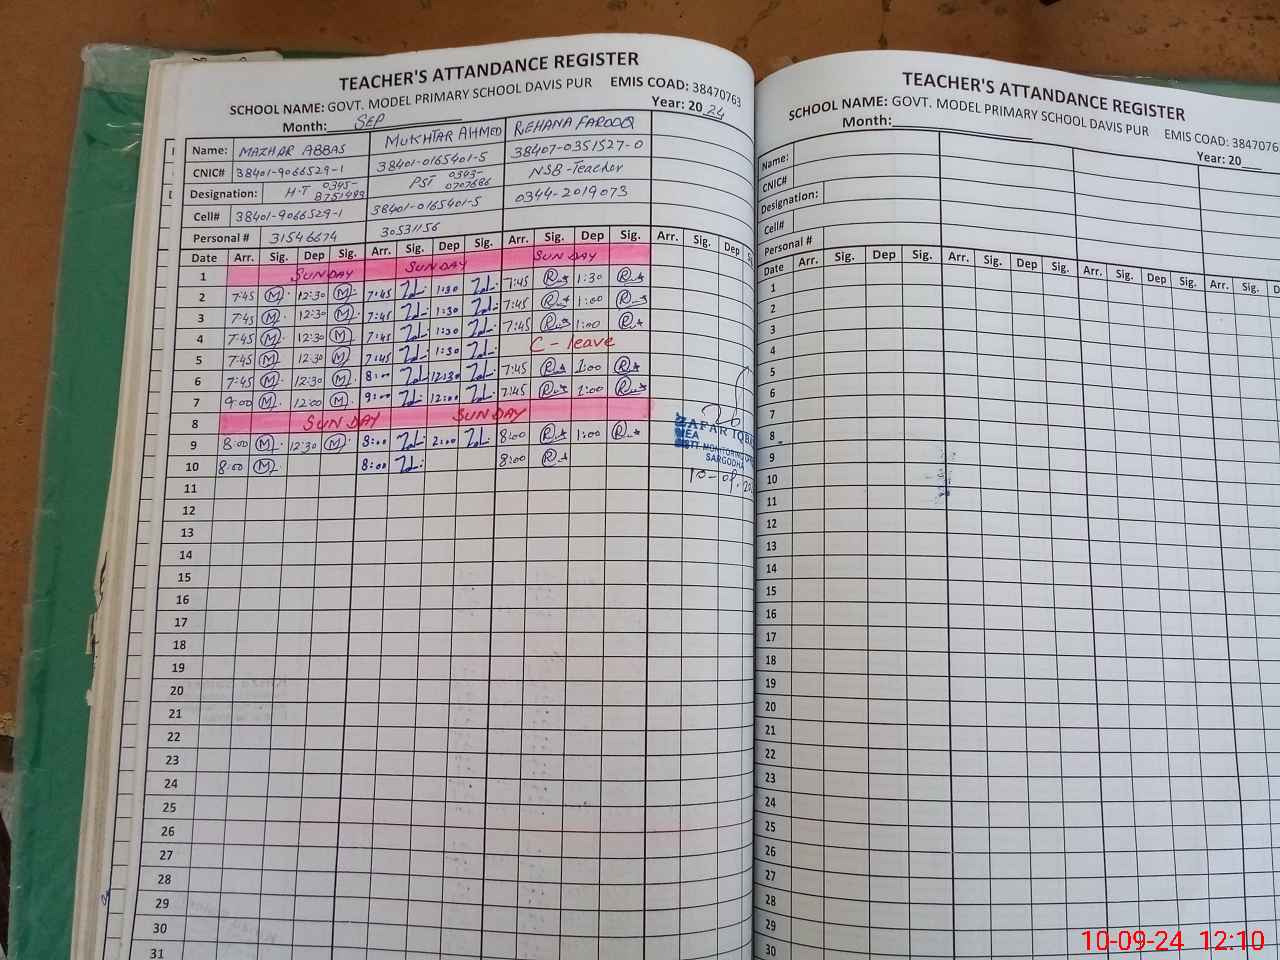 TEACHER'S ATTANDANCE REGISTER
SCHOOL NAME: GOVT. MODEL PRIMARY SCHOOL DAVIS PUR EMIS COAD: 38470763
Month: SEP Year: 2024
Name: MAZHAR ABBAS MUKHTAR AHMED REHANA FAROOQ
CNIC# 38401-9066529-1 38401-0165401-5 38407-0351527-0
Designation: H.T 0345-8751493 PST 0343-0707686 NSB-Teacher
Cell# 38401-9066529-1 38401-0165401-5 0344-2019073
Personal # 31546674 30531156
Date Arr. Sig. Dep Sig. Arr. Sig. Dep Sig. Arr. Sig. Dep Sig. Arr. Sig. Dep
1 SUNDAY SUNDAY SUNDAY
2 7:45 M 12:30 M 7:45 1:30 7:45 R 1:30 R
3 7:45 M 12:30 M 7:45 1:30 7:45 R 1:00 R
4 7:45 M 12:30 M 7:45 1:30 7:45 R 1:00 R
5 7:45 M 12:30 M 7:45 1:30 C-leave
6 7:45 M 12:30 M 8:00 12:30 7:45 R 1:00 R
7 9:00 M 12:00 M 9:00 12:00 7:45 R 1:00 R
8 SUNDAY SUNDAY
9 8:00 M 12:30 M 8:00 2:00 8:00 R 1:00 R
10 8:00 M 8:00 8:00 R
11
12
13
14
15
16
17
18
19
20
21
22
23
24
25
26
27
28
29
30
31
SARGODHA
TEACHER'S ATTANDANCE REGISTER
SCHOOL NAME: GOVT. MODEL PRIMARY SCHOOL DAVIS PUR EMIS COAD: 3847076
Month: Year: 20
Name:
CNIC#
Designation:
Cell#
Personal #
Date Arr. Sig. Dep Sig. Arr. Sig. Dep Sig. Arr. Sig. Dep Sig. Arr. Sig.
1
2
3
4
5
6
7
8
9
10
11
12
13
14
15
16
17
18
19
20
21
22
23
24
25
26
27
28
29
30
10-09-24 12:10